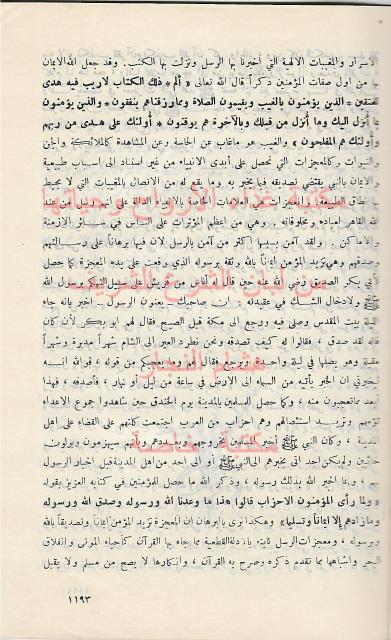 الاسرار والمغيبات الالهية التي أخبرنا بها الرسل ونزلت بها الكتب. وقد جعل الله الايمان
بها من اول صفات المؤمنين ذكراً قال الله تعالى « ألم * ذلك الكتاب لاريب فيه هدى
للمتقين * الذين يؤمنون بالغيب ويقيمون الصلاة ومما رزقناهم ينفقون * والذين يؤمنون
بما أنزل اليك وما أنزل من قبلك وبالآخرة هم يوقنون * أولئك على هدى من ربهم
وأولئك هم المفلحون » والغيب هو ماغاب عن الحاسة وعن المشاهدة كالملائكة والجن
والنبوات وكالمعجزات التي تحصل على أيدي الانبياء من غير اسناد الى اسباب طبيعية
والايمان بالنبي يقتضي تصديقه فيما يخبر به وما يقع له من الاتصال بالمغيبات التي لا يحيط
بها نطاق الطبيعة والمعجزات هي العلامات الخاصة بالانبياء الدالة على انهم رسل من عند
الله القاهر لعباده ومخلوقاته . وهي من اعظم المؤثرات على الناس في سائر الازمنة
والاماكن . ولقد آمن بسببها أكثر من آمن بالرسل لان فيها برهاناً على رسالتهم
وصدقهم وهي تزيد المؤمن إيماناً بالله وثقة برسوله الذي وقعت على يده المعجزة كما حصل
لأبي بكر الصديق رضي الله عنه حين قال له أناس من قريش على سبيل التهكم برسول الله
ﷺ ولادخال الشك في عقيدته : ان صاحبك - يعنون الرسول .. اخبر بانه جاء
ليلة بيت المقدس وصلى فيه ورجع الى مكة قبل الصبح فقال لهم ابو بكر لأن كان
قاله لقد صدق ، فقالوا له كيف تصدقه ونحن نطرد العير الى الشام شهراً مدبرة وشهراً
مقبلة وهو يصلها في ليلة واحدة ويرجع فقال لهم وما يعجبكم من قوله ، فوالله انه
ليخبرني ان الخبر يأتيه من السماء الى الارض في ساعة من ليل أو نهار ، فأصدقه ، فهذا
أبعد مما تعجبون منه ، وكما حصل للمسلمين بالمدينة يوم الخندق حين شاهدوا جموع الاعداء
تؤمهم وتريد استئصالهم وهم احزاب من العرب اجتمعت كلمتهم على القضاء على اهل
المدينة ، وكان النبي ﷺ أخبر المسلمين بخروجهم وبعددهم وبأنهم سيهزمون ويولون
خائبين ولم يكن احد اتى بخبرهم الى النبي ﷺ أو الى احد من اهل المدينة قبل اخبار الرسول
بهم ، وانما اخبر الله بذلك رسوله ، وذكر الله ما حصل للمؤمنين في كتابه العزيز بقوله
« ولما رأى المؤمنون الاحزاب قالوا هذا ما وعدنا الله ورسوله وصدق الله ورسوله
وما زادهم إلا ايماناً وتسليما » وهكذا نرى بالبرهان ان المعجزة تزيد المؤمن ايماناً وتصديقاً بالله
وبرسوله ، ومعجزات الرسل ثابتة بالادلة القطعية مما جاء بها القرآن كأحياء الموتى وانفلاق
البحر واشباهها مما تقدم ذكره وصرح به القرآن ، وانكارها لا يصح من مسلم ولا يقبل
١١٩٣
هشام النجار